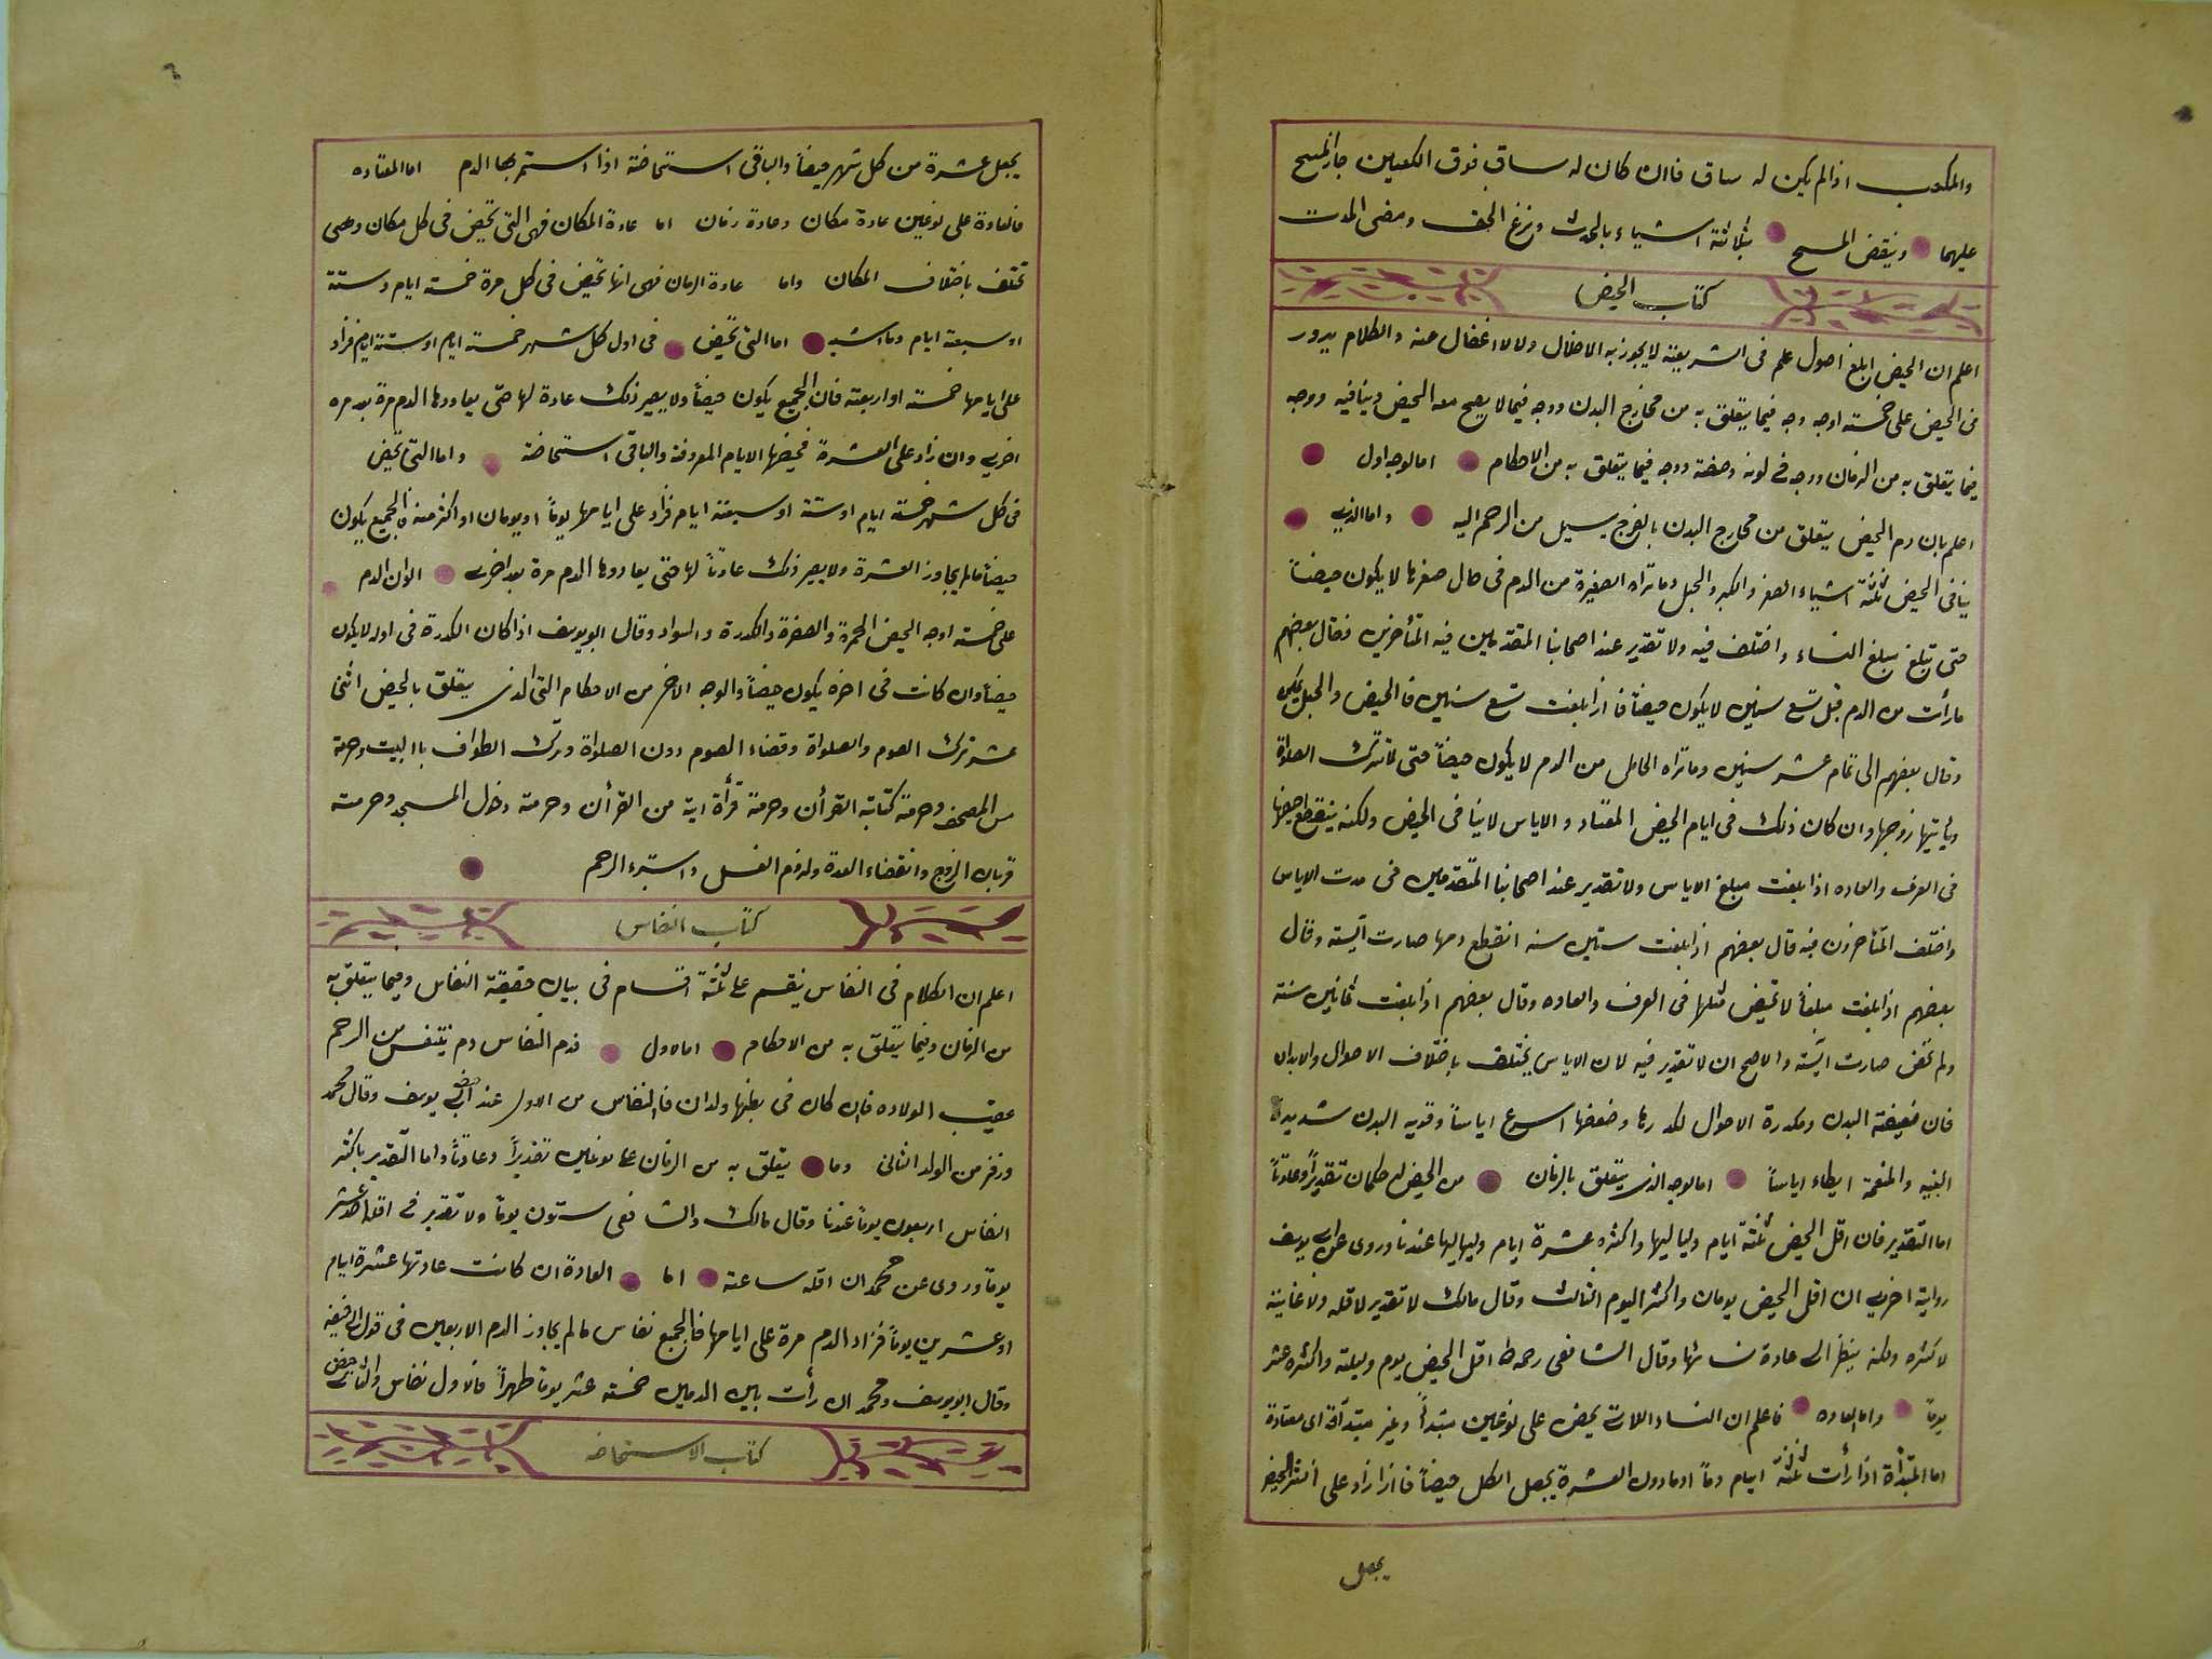 والمكعب اذا لم يكن له ساق فاان كان له ساق فوق الكعبين جاز المسح
عليهما وينقض المسح بثلاثة اشياء بالحدث ونزع الخف ومضى المدت
كتاب الحيض
اعلم ان الحيض ابلغ اصول علم فى الشريعة لا يجوز به الاخلال ولا الاغفال عنه والكلام يدور
فى الحيض على خمسة اوجه وجه فيما يتعلق به من مخارج البدن ووجه فيما لا يصح معه الحيض وينافيه ووجه
فيما يتعلق به من الزمان ووجه فى لونه وصفته ووجه فيما يتعلق به من الاحكام اما لوجه اول
اعلم بان دم الحيض يتعلق من مخارج البدن بالفرج يسيل من الرحم اليه واما الذى
ينافى الحيض ثلثة اشياء الصغر والكبر والحبل وما تراه الصغيرة من الدم فى حال صغرها لا يكون حيضاً
حتى تبلغ مبلغ النساء واختلف فيه ولا تقدير عند اصحابنا المتقدمين فيه المتأخرين فقال بعضهم
ما رأت من الدم قبل تسع سنين لا يكون حيضاً فاذا بلغت تسع سنين فا الحيض والحبل يمكن
وقال بعضهم الى تمام عشر سنين وما تراه الحامل من الدم لا يكون حيضاً حتى لا تترك الصلواة
ويأتيها زوجها وان كان ذلك فى ايام الحيض المعتاد والاياس لا ينافى الحيض ولكنه ينقطع حيضها
فى العرف والعاده اذا بلغت مبلغ الاياس ولا تقدير عند اصحابنا المتقدمين فى مدت الاياس
واختلف المتأخرون فيه قال بعضهم اذا بلغت ستين سنه انقطع دمها صارت آيسته وقال
بعضهم اذا بلغت مبلغاً لا تحيض مثلها فى العرف والعاده وقال بعضهم اذا بلغت ثمانين سنة
ولم تحض صارت آيسته والاصح ان لا تقدير فيه لان الاياس يختلف باختلاف الاحوال والابدان
فان ضعيفة البدن ومكدرة الاحوال لكدرها وضعفها اسرع اياساً وقويه البدن شديدة
البنيه والمنعمة ابطاء اياساً اما لوجه الذى يتعلق بالزمان من الحيض له حكمان تقديراً وعادتاً
اما التقدير فان اقل الحيض ثلثة ايام ولياليها واكثره عشرة ايام ولياليها عندنا وروى عن ابى يوسف
رواية اخرى ان اقل الحيض يومان واكثر اليوم الثالث وقال مالك لا تقدير لاقله ولا غاية
لاكثره ولكنه ينظر الى عادة نسائها وقال الشافعى رحمه الله اقل الحيض يوم وليلته واكثره عشر
يوماً واما العاده فاعلم ان النساء اللات يحض على نوعين مبتدأ وغير مبتدأة اى معتادة
اما المبتدأة اذا رأت ثلثة ايام دماً او ما دون العشرة يجعل الكل حيضاً فاذا زاد على اكثر الحيض
يجعل
يجعل عشرة من كل شهر حيضاً والباقى استحاضة اذا استمر بها الدم اما المعتاده
فالعادة على نوعين عادة مكان وعادة زمان اما عادة المكان فهى التى تحيض فى كل مكان وهى
تختلف باختلاف المكان واما عادة الزمان فهى انها تحيض فى كل مرة خمسة ايام وستة
او سبعة ايام وما اشبه اما التى تحيض فى اول كل شهر خمسة ايام او ستة ايام فزاد
على ايامها خمسته او اربعته فان الجميع يكون حيضاً ولا يصير ذلك عادة لها حتى يعاودها الدم مرة بعد مره
اخرى وان زاد على العشرة فحيضها الايام المعروفة والباقى استحاضة واما التى تحيض
فى كل شهر خمسة ايام او ستة او سبعة ايام فزاد على ايامها يوماً او يومان او اكثر منه فا الجميع يكون
حيضاً مالم يجاوز العشرة ولا يصير ذلك عادتاً لها حتى يعاودها الدم مرة بعد اخرى الوان الدم
على خمسته اوجه الحيض الحمرة والصفرة والكدرة والسواد وقال ابويوسف اذا كان الكدرة فى اوله لا يكون
حيضاً وان كانت فى اخره يكون حيضاً والوجه الاخر من الاحكام التى الذى يتعلق بالحيض اثنى
عشر ترك الصوم والصلواة وقضاء الصوم دون الصلواة وترك الطواف باالبيت وحرمة
مس المصحف وحرمة كتابة القرأن وحرمة قرأة اية من القرأن وحرمة دخول المسجد وحرمته
قربان الزوج وانقضاء العدة ولزوم الغسل واستبراء الرحم
كتاب النفاس
اعلم ان الكلام فى النفاس ينقسم على ثلثة اقسام فى بيان حقيقة النفاس وفيما يتعلق به
من الزمان وفيما يتعلق به من الاحكام اما ول فدم النفاس دم يتنفس من الرحم
عقيب الولاده فان كان فى بطنها ولدان فا النفاس من الاول عند ابى يوسف وقال محمد
وزفر من الولد الثانى وما يتعلق به من الزمان على نوعين تقديراً وعادتاً واما التقدير باكثر
النفاس اربعون يوماً عندنا وقال مالك والشافعى ستون يوماً ولا تقدير فى اقله احد عشر
يوماً وروى عن محمد ان اقله ساعته اما العادة ان كانت عادتها عشرة ايام
او عشرين يوماً فزاد الدم مرة على ايامها فا الجميع نفاس مالم يجاوز الدم الاربعين فى قول ابى حنيفه
وقال ابويوسف ومحمد ان رأت بين الدمين خمسته عشر يوماً طهراً فالاول نفاس والثانى حيض
كتاب الاستحاضه